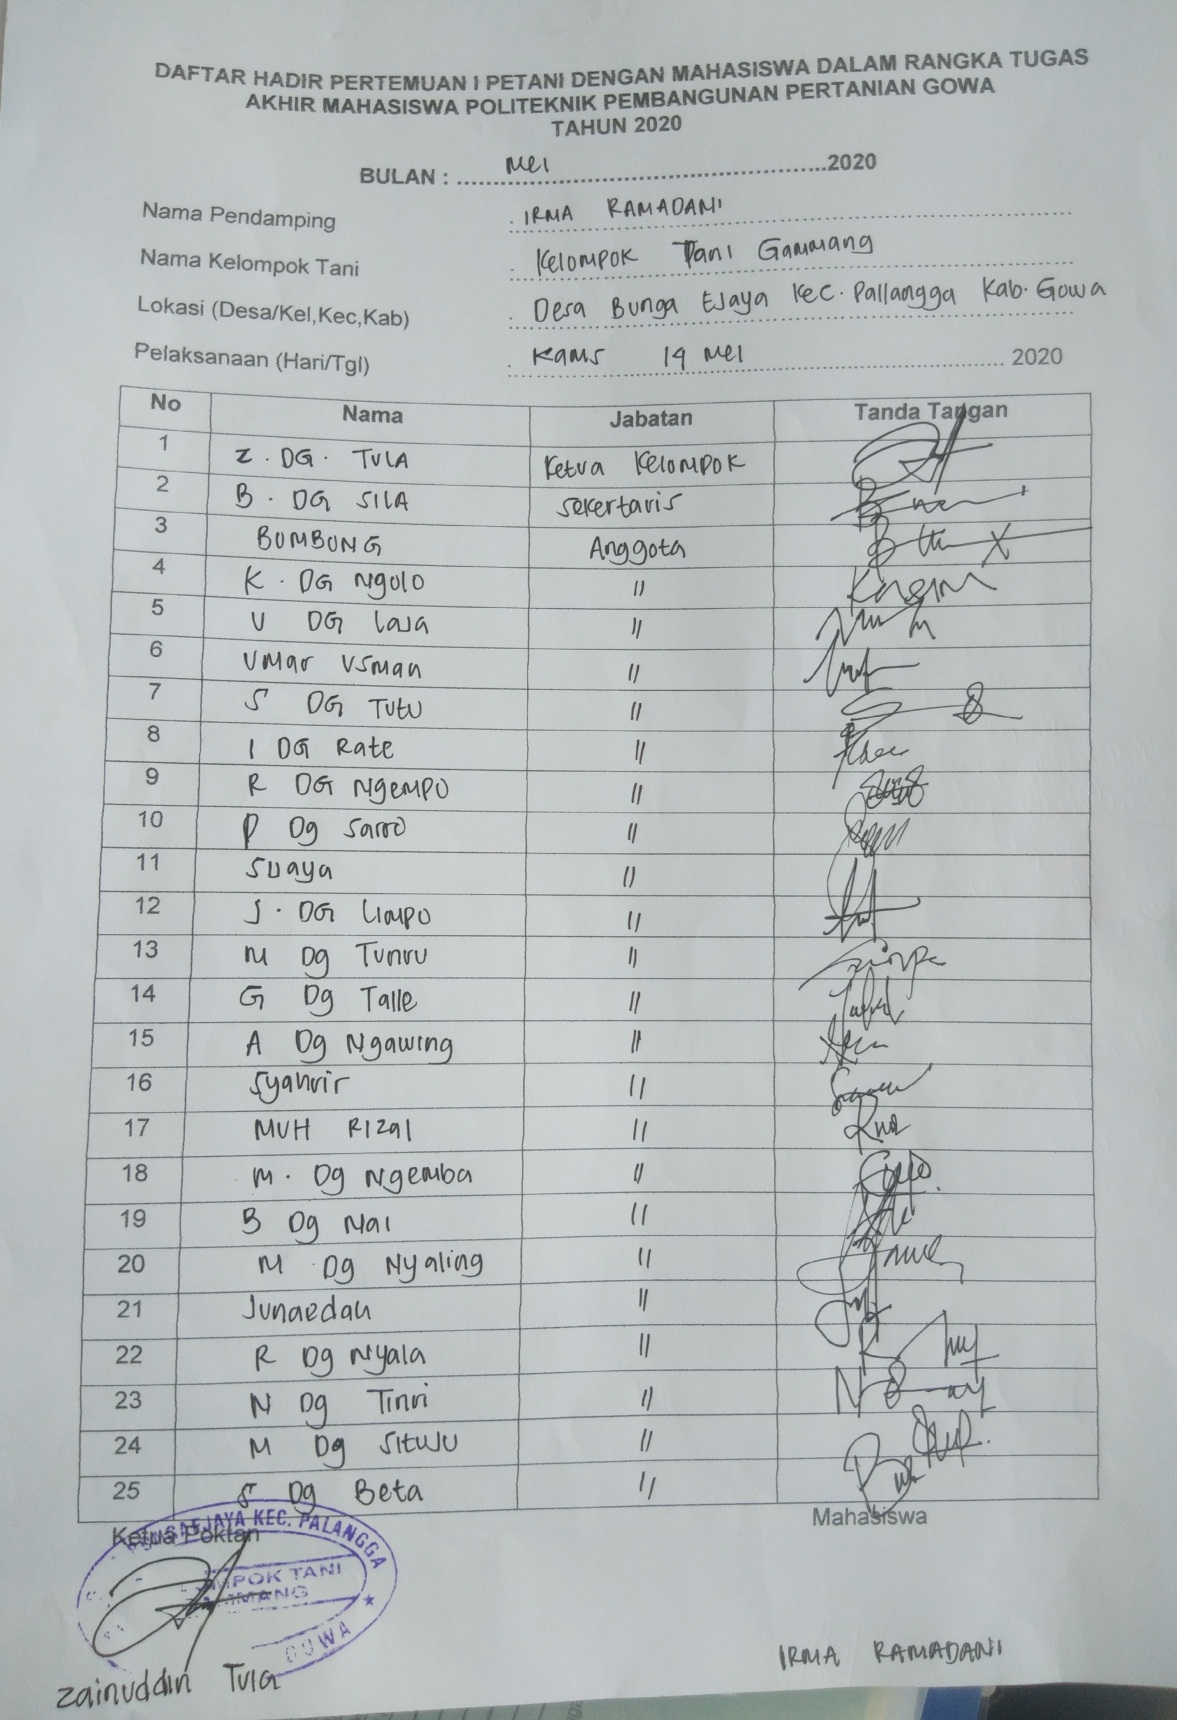 DAFTAR HADIR PERTEMUAN I PETANI DENGAN MAHASISWA DALAM RANGKA TUGAS
AKHIR MAHASISWA POLITEKNIK PEMBANGUNAN PERTANIAN GOWA
TAHUN 2020
BULAN : Mei 2020
Nama Pendamping IRMA RAMADANI
Nama Kelompok Tani Kelompok Tani Gammang
Lokasi (Desa/Kel,Kec,Kab) Desa Bunga Ejaya Kec. Pallangga Kab. Gowa
Pelaksanaan (Hari/Tgl) Kamis 14 Mei 2020
No Nama Jabatan Tanda Tangan
1 Z. DG. TULA Ketua Kelompok
2 B. DG SILA Sekertaris
3 BUMBUNG Anggota
4 K. DG Ngolo "
5 U DG Laja "
6 Umar Usman "
7 S DG Tutu "
8 I DG Rate "
9 R DG Ngempo "
10 P Dg Sarro "
11 Suaya "
12 J. DG Limpo "
13 M Dg Tunru "
14 G Dg Talle "
15 A Dg Ngawing "
16 Syahrir "
17 MUH Rizal "
18 M. Dg Ngemba "
19 B Dg Nai "
20 M Dg Nyaling "
21 Junaedah "
22 R Dg Nyala "
23 N Dg Tinri "
24 M Dg Situju "
25 S Dg Beta "
Ketua Poktan Mahasiswa
EJAYA KEC. PALANGGA
MPOK TANI
GOWA
Zainuddin Tula IRMA RAMADANI